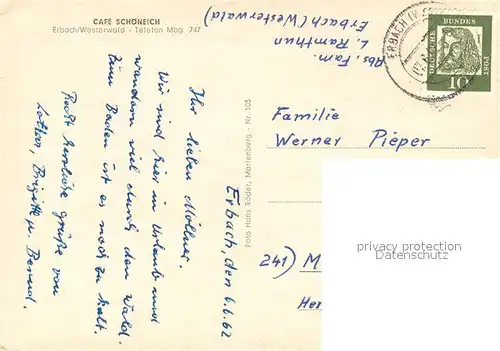 CAFÉ SCHÖNEICH
Erbach/Westerwald - Telefon Mbg. 747
Abs. Fam.
L. Ramthun
Erbach (Westerwald)
ERBACH (W
DEUTSCHE BUNDES POST
10
Erbach, den 6.6.62
Ihr lieben Möllner.
Wir sind hier in Urlaub und
wandern viel durch den Wald.
Zum Baden ist es noch zu kalt.
Recht herzliche Grüße von
Lothar, Brigitte u. Bernd.
Foto Hans Röder, Marienberg - Nr. 103
Familie
Werner Pieper
241) M
Her
privacy protection
Datenschutz